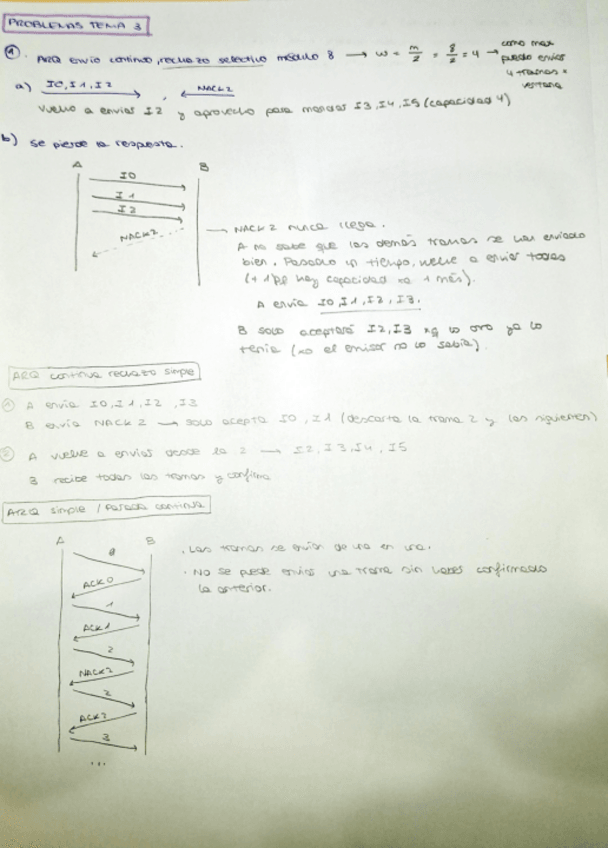 PROBLEMAS TEMA 3
① . ARQ envio continuo, rechazo selectivo módulo 8 → w = m/2 = 8/2 = 4 → como max
puedo enviar
4 tramas =
ventana
a) I0, I1, I2 , NACK2
vuelvo a enviar I2 y aprovecho para mandar I3, I4, I5 (capacidad 4)
b) se pierde la respuesta.
A B
I0
I1
I2
NACK2
→ NACK2 nunca llega.
A no sabe que las demás tramas se han enviado
bien. Pasado un tiempo, vuelve a enviar todas
(+ 1 pq hay capacidad 1 más).
A envía I0, I1, I2, I3.
B solo aceptará I2, I3 xq lo otro ya lo
tenía (xo el emisor no lo sabía).
ARQ continua rechazo simple
① A envía I0, I1, I2, I3
B envía NACK2 → solo acepta I0, I1 (descarta la trama 2 y las siguientes)
② A vuelve a enviar desde la 2 → I2, I3, I4, I5
B recibe todas las tramas y confirma
ARQ simple / Parada continua
A B
0
ACK0
1
ACK1
2
NACK2
2
ACK2
3
...
· Las tramas se envían de una en una.
· No se puede enviar una trama sin haber confirmado
la anterior.